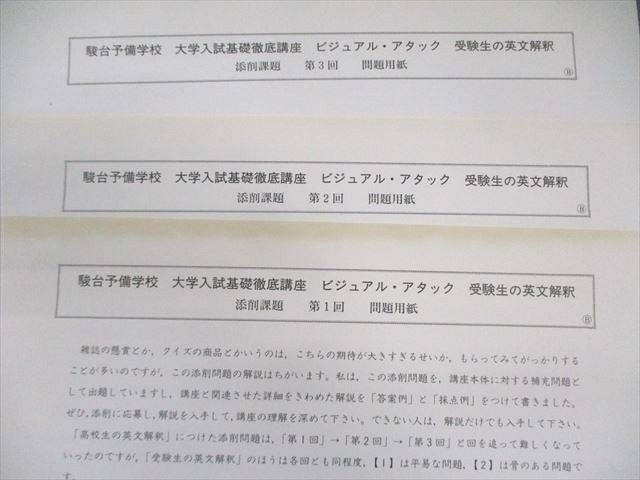 駿台予備学校　大学入試基礎徹底講座　ビジュアル・アタック　受験生の英文解釈
添削課題　第３回　問題用紙
Ⓑ
駿台予備学校　大学入試基礎徹底講座　ビジュアル・アタック　受験生の英文解釈
添削課題　第２回　問題用紙
Ⓑ
駿台予備学校　大学入試基礎徹底講座　ビジュアル・アタック　受験生の英文解釈
添削課題　第１回　問題用紙
Ⓑ
雑誌の懸賞とか，クイズの商品とかいうのは，こちらの期待が大きすぎるせいか，もらってみてがっかりする
ことが多いのですが，この添削問題の解説はちがいます。私は，この添削問題を，講座本体に対する補充問題と
して出題していますし，講座と関連させた詳細をきわめた解説を「答案例」と「採点例」をつけて書きました。
ぜひ，添削に応募し，解説を入手して，講座の理解を深めて下さい。できない人は，解説だけでも入手して下さい。
「高校生の英文解釈」につけた添削問題は，「第１回」→「第２回」→「第３回」と回を追って難しくなって
いったのですが，「受験生の英文解釈」のほうは各回とも同程度，【１】は平易な問題，【２】は骨のある問題で
す。